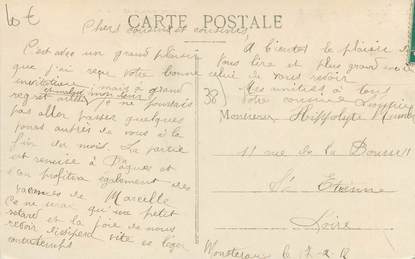 10€
CARTE POSTALE
Chers cousins et cousines,
C'est avec un grand plaisir
que j'ai reçu votre bonne
invitation, mais à grand
regret je ne pourrais
pas aller passer quelques
jours auprès de vous à la
fin du mois. La partie
est remise à Pâques et
l'on profitera également des
vacances de Marcelle
Ce ne sera qu'un petit
retard et la joie de nous
revoir dissipera vite ce léger
contretemps.
A bientôt le plaisir de
vous lire et plus grand
celui de vous revoir
Mes amitiés à tous
Votre cousine
38)
Monsieur Hippolyte
11 rue de la
St Etienne
Loire